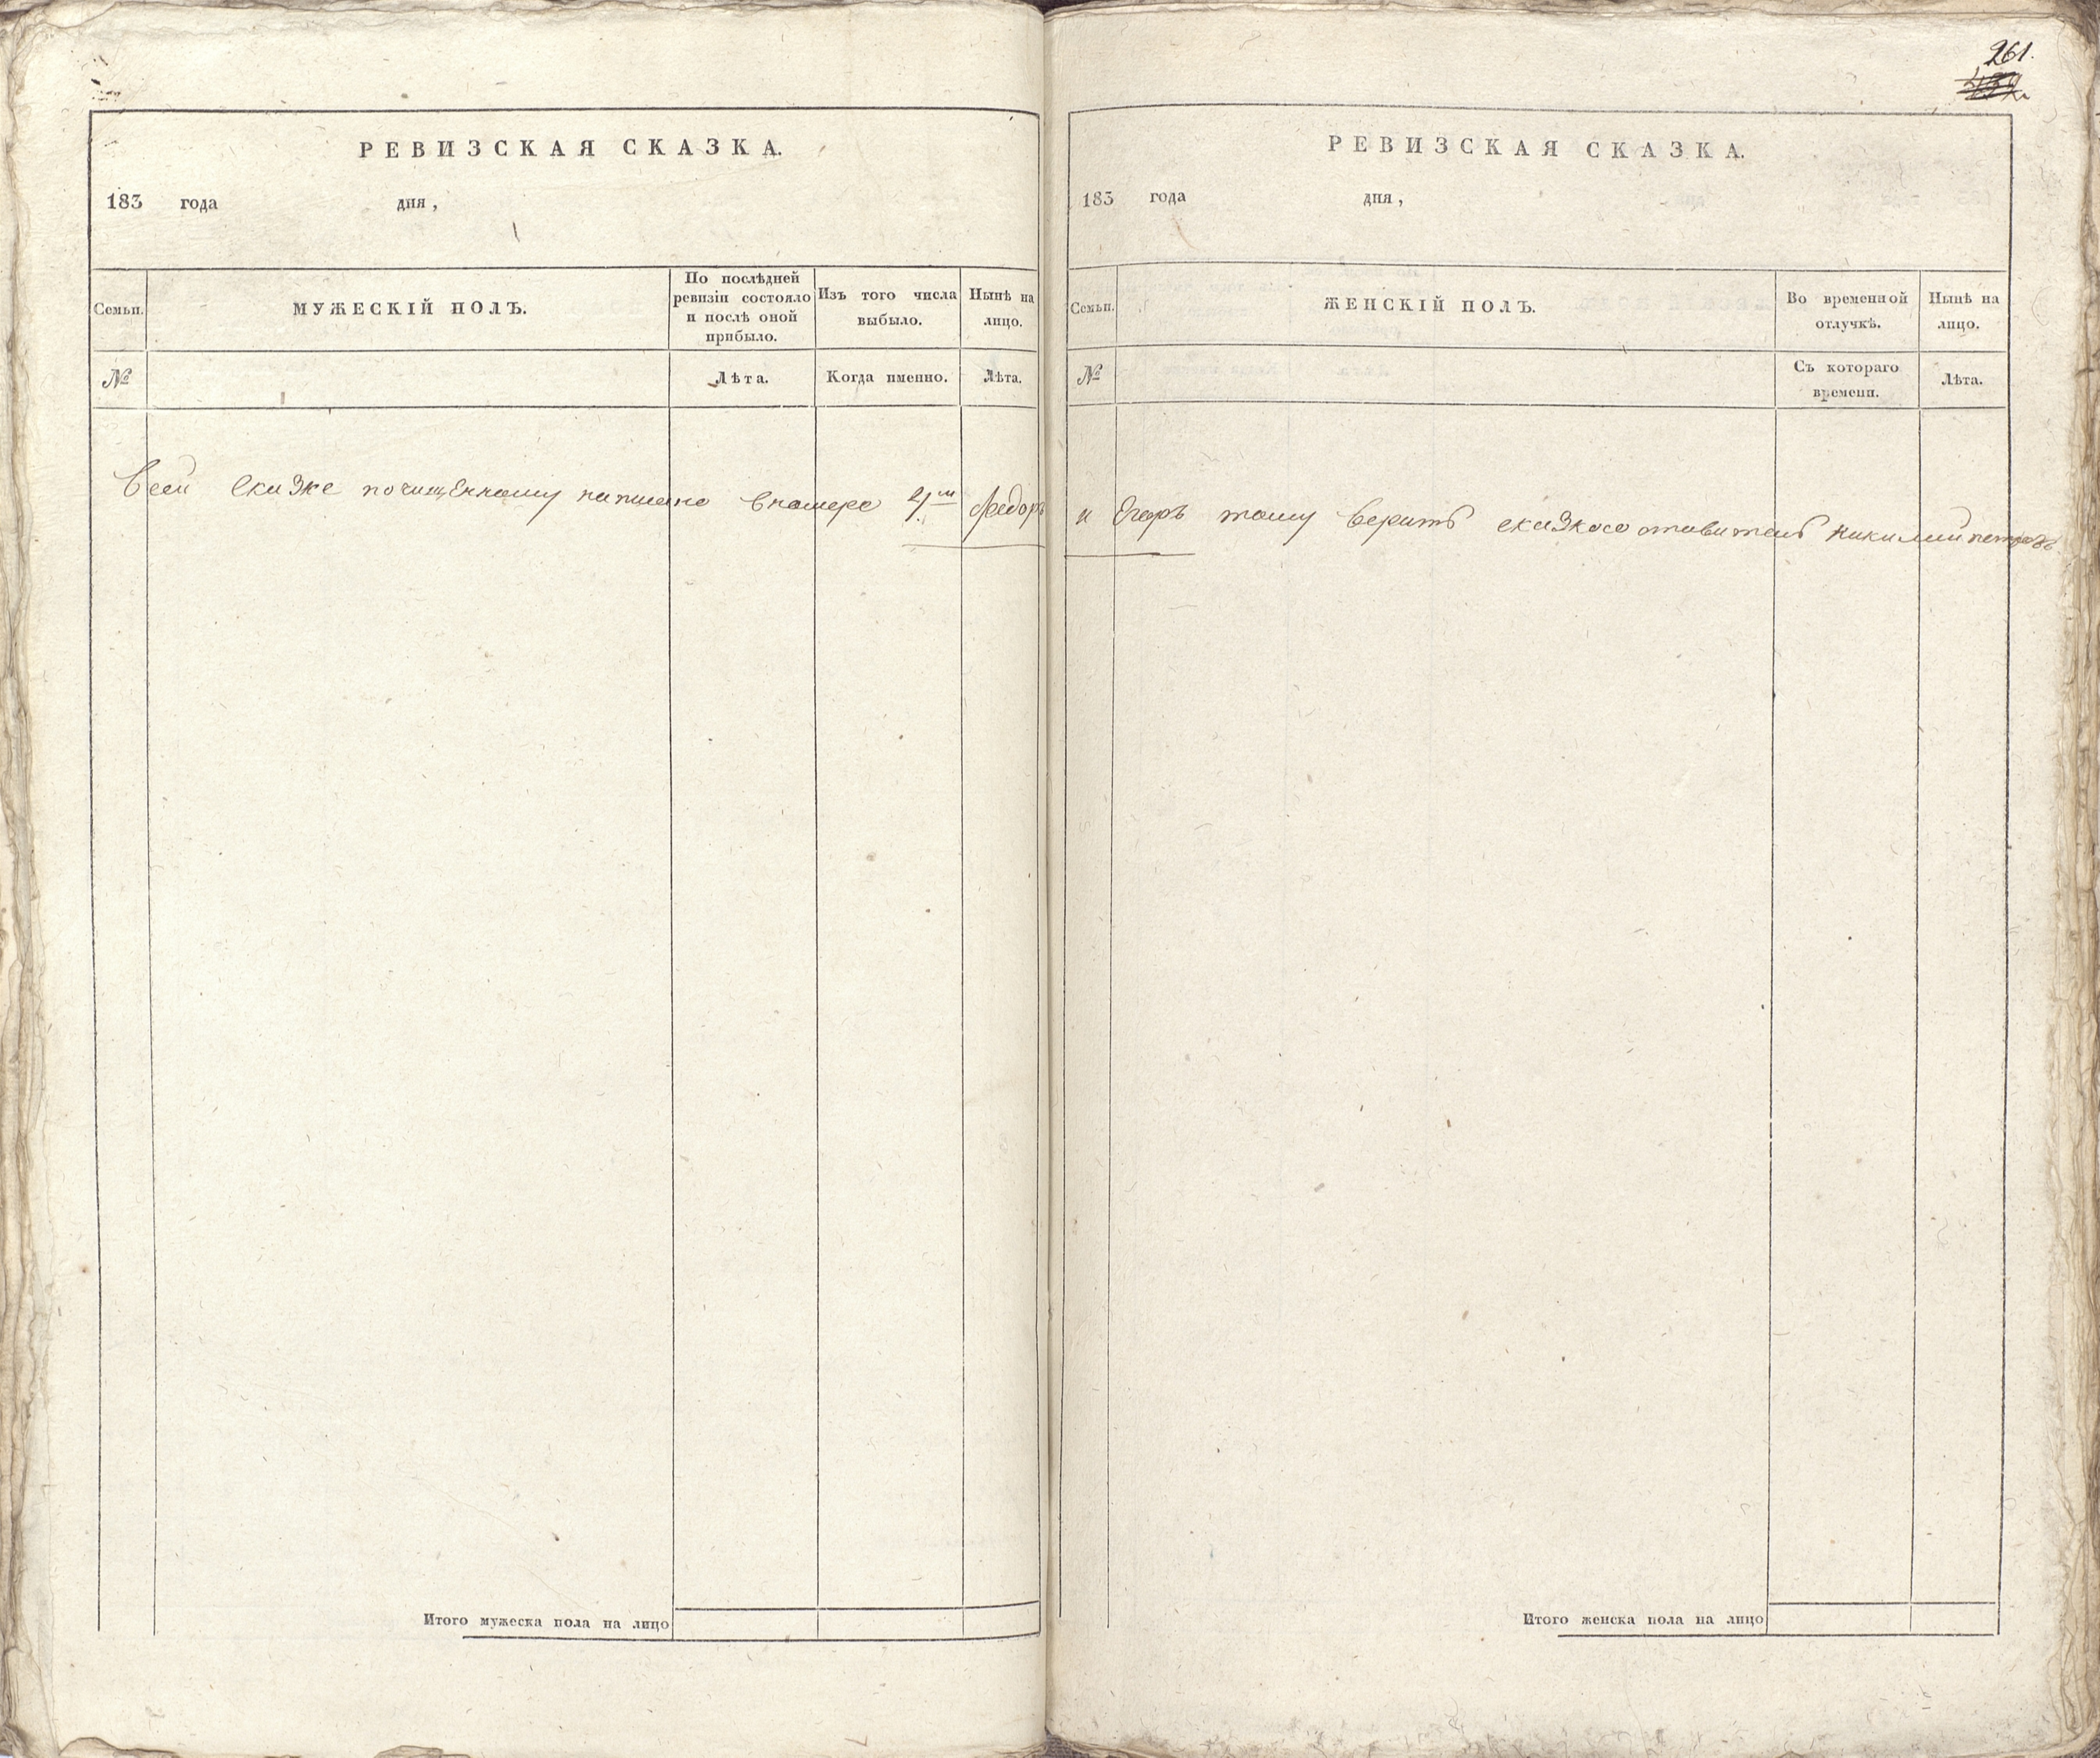 РЕВИЗСКАЯ СКАЗКА.
183 года дня,
Семьи.
МУЖЕСКІЙ ПОЛЪ.
По послѣдней
ревизіи состояло
и послѣ оной
прибыло.
Изъ того числа
выбыло.
Нынѣ на
лицо.
№
Лѣта.
Когда именно.
Лѣта.
Всей сказке почищенному написано вномере Федоръ
Итого мужеска пола на лицо
261.
РЕВИЗСКАЯ СКАЗКА.
183 года дня,
Семьи.
ЖЕНСКІЙ ПОЛЪ.
Во временной
отлучкѣ.
Нынѣ на
лицо.
№
Съ котораго
времени.
Лѣта.
и Егоръ тому верить
Итого женска пола на лицо